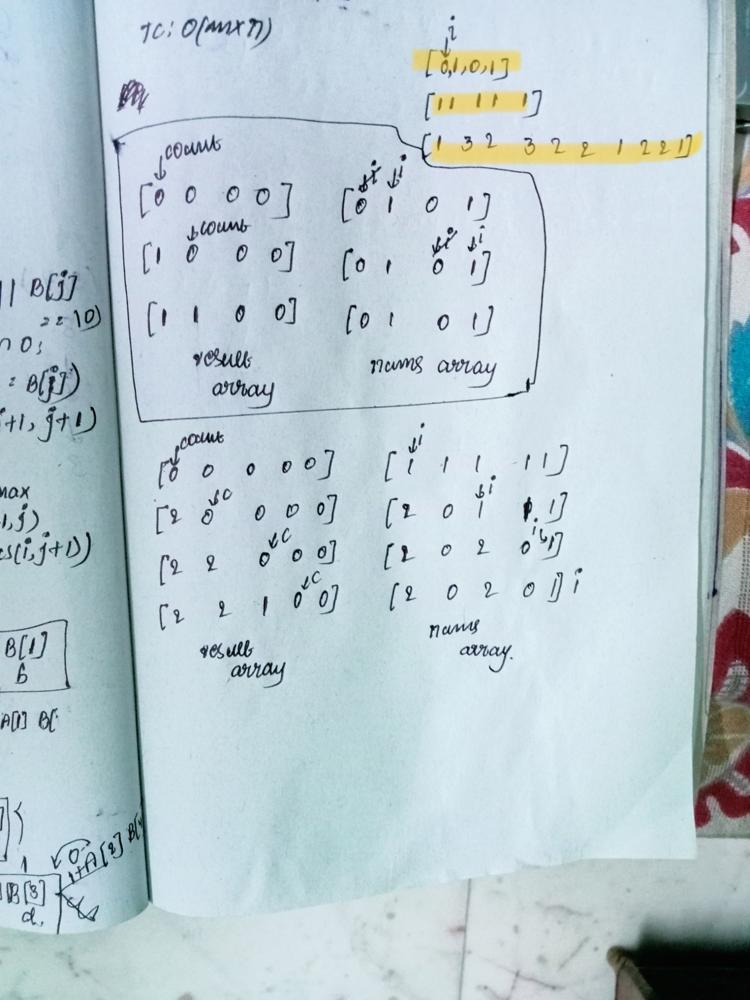 TC: O(m×n)
i
[0,1,0,1]
[11 11 1]
[1 3 2 3 2 2 1 2 2 1]
count
[0 0 0 0]
i i
[0 1 0 1]
count
[1 0 0 0]
i i
[0 1 0 1]
[1 1 0 0]
[0 1 0 1]
result array
nums array
count
[0 0 0 0 0]
i
[1 1 1 1 1]
c
[2 0 0 0 0]
i
[2 0 1 1 1]
c
[2 2 0 0 0]
i
[2 0 2 0 1]
c
[2 2 1 0 0]
[2 0 2 0 1] i
result array
nums array.
|| B[j]
== 0)
n 0;
= B[j])
i+1, j+1)
max
1,j)
s(i,j+1))
B[1]
b
A[1] B[
0
1+A[2] B[
B[3]
d,